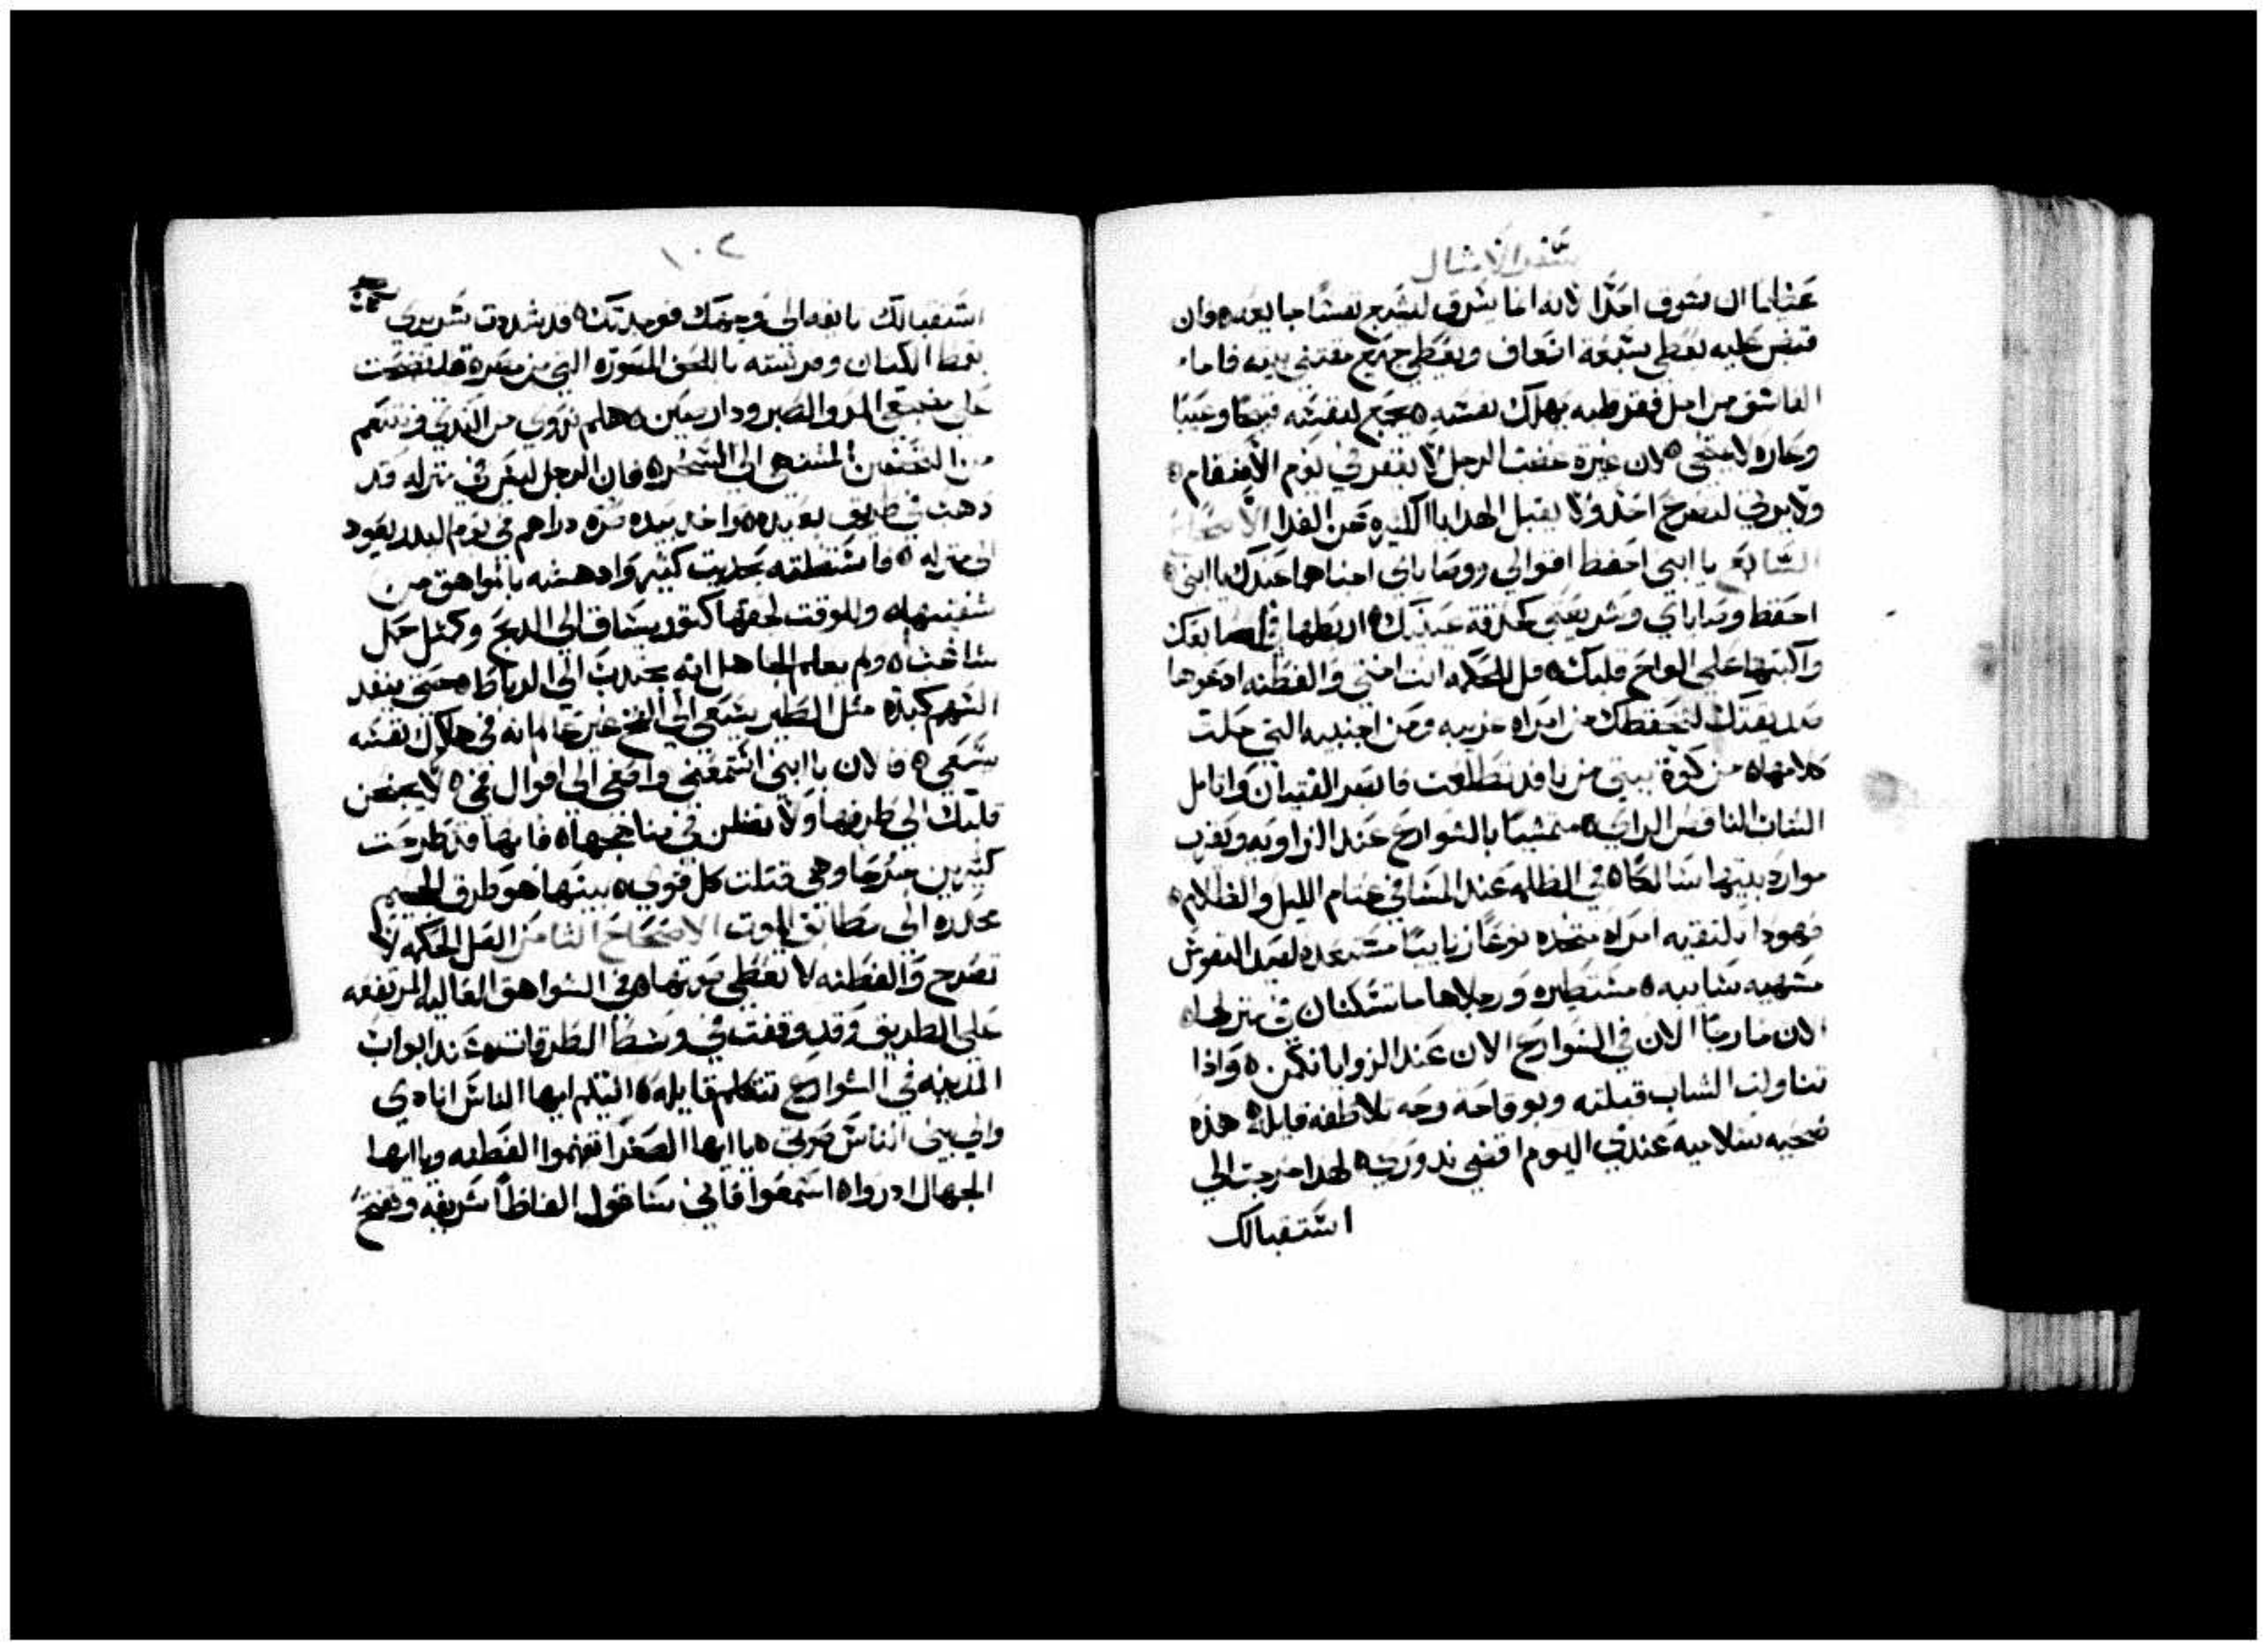 سفر الامثال
عندما ان يسرق احدًا لانه انما يسرق ليشبع نفسًا جايعه ه وان
قبض عليه يعطي سبعة اضعاف ويعطي جميع مقتنى بيته فاما
الفاسق من اجل فقر طبه يهلك نفسه ه يجمع لنفسه قبحًا وعيبًا
وعاره لا ينمحي ه لان غيرة غضب الرجل لا يغفر في يوم الانتقام ه
ولا يرضي لتضرع احد ولا يقبل الهدايا الكثيره عن الفدا الاصحاح
السابع يا ابني احفظ اقوالي ووصاياي اخباها عندك يا ابني ه
احفظ وصاياي وشريعتي كحدقة عينيك ه اربطها في اصابعك
واكتبها علي الواح قلبك ه قل للحكمه انت اختي والفطنه ادعوها
صديقتك لتحفظك من امراه غريبه ومن اجنبيه التي حلت
كلامها ه من كوة بيتي من يافد تطلعت فابصر الفتيان واتامل
الشاب الناقص الراي ه متمشيًا بالشوارع عند الزاويه وبقرب
موارد بيتها سالكًا ه في الظلمه عند المسا في عتام الليل والظلام ه
فهوذا تلتقيه امراه متخذه نوعًا زنايًا مستعده لصيد النفوس
مشهيه سابيه ه مستطيره ورجلاها ما تسكنان في منزلها ه
الان خارجًا الان في الشوارع الان عند الزوايا تكمن ه واذا
تناولت الشاب قبلته وبوقاحة وجه تلاطفه قايلة ه هذه
ضحيه سلاميه عندي اليوم اقضي ندوري ه لهذا خرجت الي
استقبالك
١٠٢
استقبالك تايقه الي وجهك فوجدتك ه قد شددت سريري
بقمط الكتان وفرشته باللحف المصوره التي من مصره قد نضحت
علي مضجعي المر والصبر ودارسين ه هلم نروي من الثدي ونتنعم
من المشتهي الي السحر ه فان الرجل ليس في منزله قد
دهب في طريق بعيده ه واخد بيده صرة دراهم في يوم البدر يعود
الي منزله ه فاستنطته بحديث كثير وادهشه بالتواهق من
شفتيها ه وللوقت لحقها كتور يساق الي الدبح وكمثل حمل
شاغب ه ولم يعلم الجاهل انه يجتدب الي الرباط ه حتي ينفد
السهم كبده مثل الطير يسعي الي الفخ غير عالم انه في هلاك نفسه
يسعي ه فالان يا ابني استمعني واصغى الي اقوال فمي ه لا يجنحن
قلبك الي طريقها ولا تضلن في مناهجها ه فانها قد طرحت
كثيرين جرحا وهي قتلت كل قوي ه بيتها هو طرق الجحيم
محدره الي مطابق الموت الاصحاح الثامن العل الحكمه لا
تصرح والفطنه لا تعطي صوتها ه في الشواهق العاليه المرتفعه
علي الطريق وقد وقفت في وسط الطرقات ه عند ابواب
المدينه في الشوارع تتكلم قايله ه اليكم ايها الناس انادي
والي بني الناس صوتي ه يا ايها الصغرا تفهموا الفطنه ويا ايها
الجهال ادروا ه اسمعوا فاني ساقول الفاظًا شريفه وتفتح